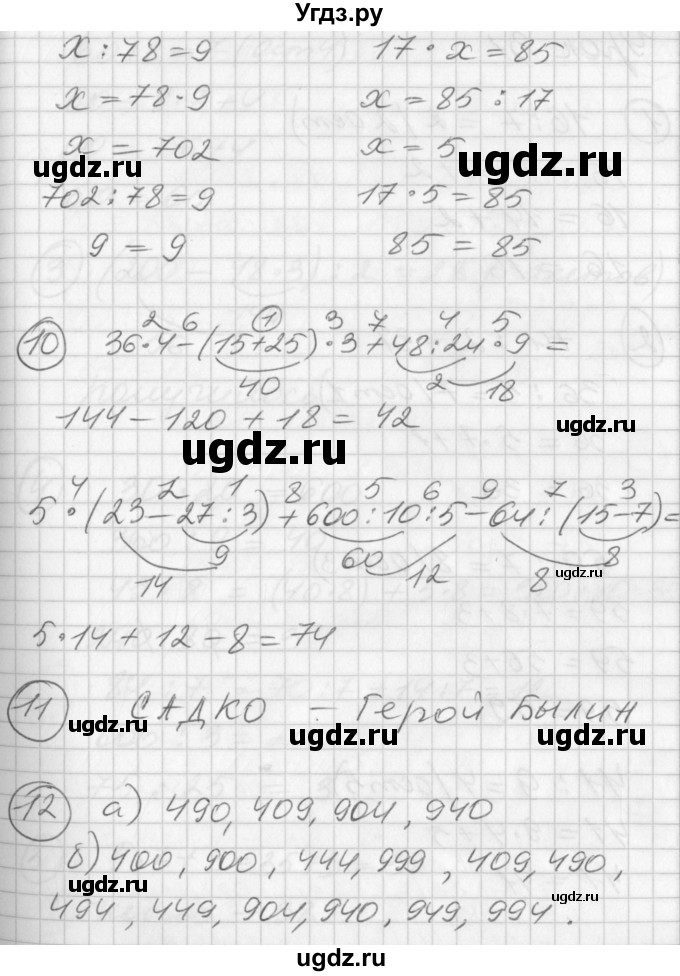 Угдз.ру
x : 78 = 9 17 · x = 85
x = 78 · 9 x = 85 : 17
x = 702 x = 5
ugdz.ru ugdz.ru
702 : 78 = 9 17 · 5 = 85
9 = 9 85 = 85
2 6 1 3 7 4 5
10 36 · 4 - (15 + 25) · 3 + 48 : 24 · 9 =
40 2 18
144 - 120 + 18 = 42
ugdz.ru ugdz.ru
4 2 1 8 5 6 9 7 3
5 · (23 - 27 : 3) + 600 : 10 : 5 - 64 : (15 - 7) =
9 60 8
14 12 8
ugdz.ru
5 · 14 + 12 - 8 = 74
11 САДКО - Герой Былин
ugdz.ru ugdz.ru ugdz.ru
12 а) 490, 409, 904, 940
б) 400, 900, 444, 999, 409, 490,
ugdz.ru ugdz.ru
494, 449, 904, 940, 949, 994.
ugdz.ru